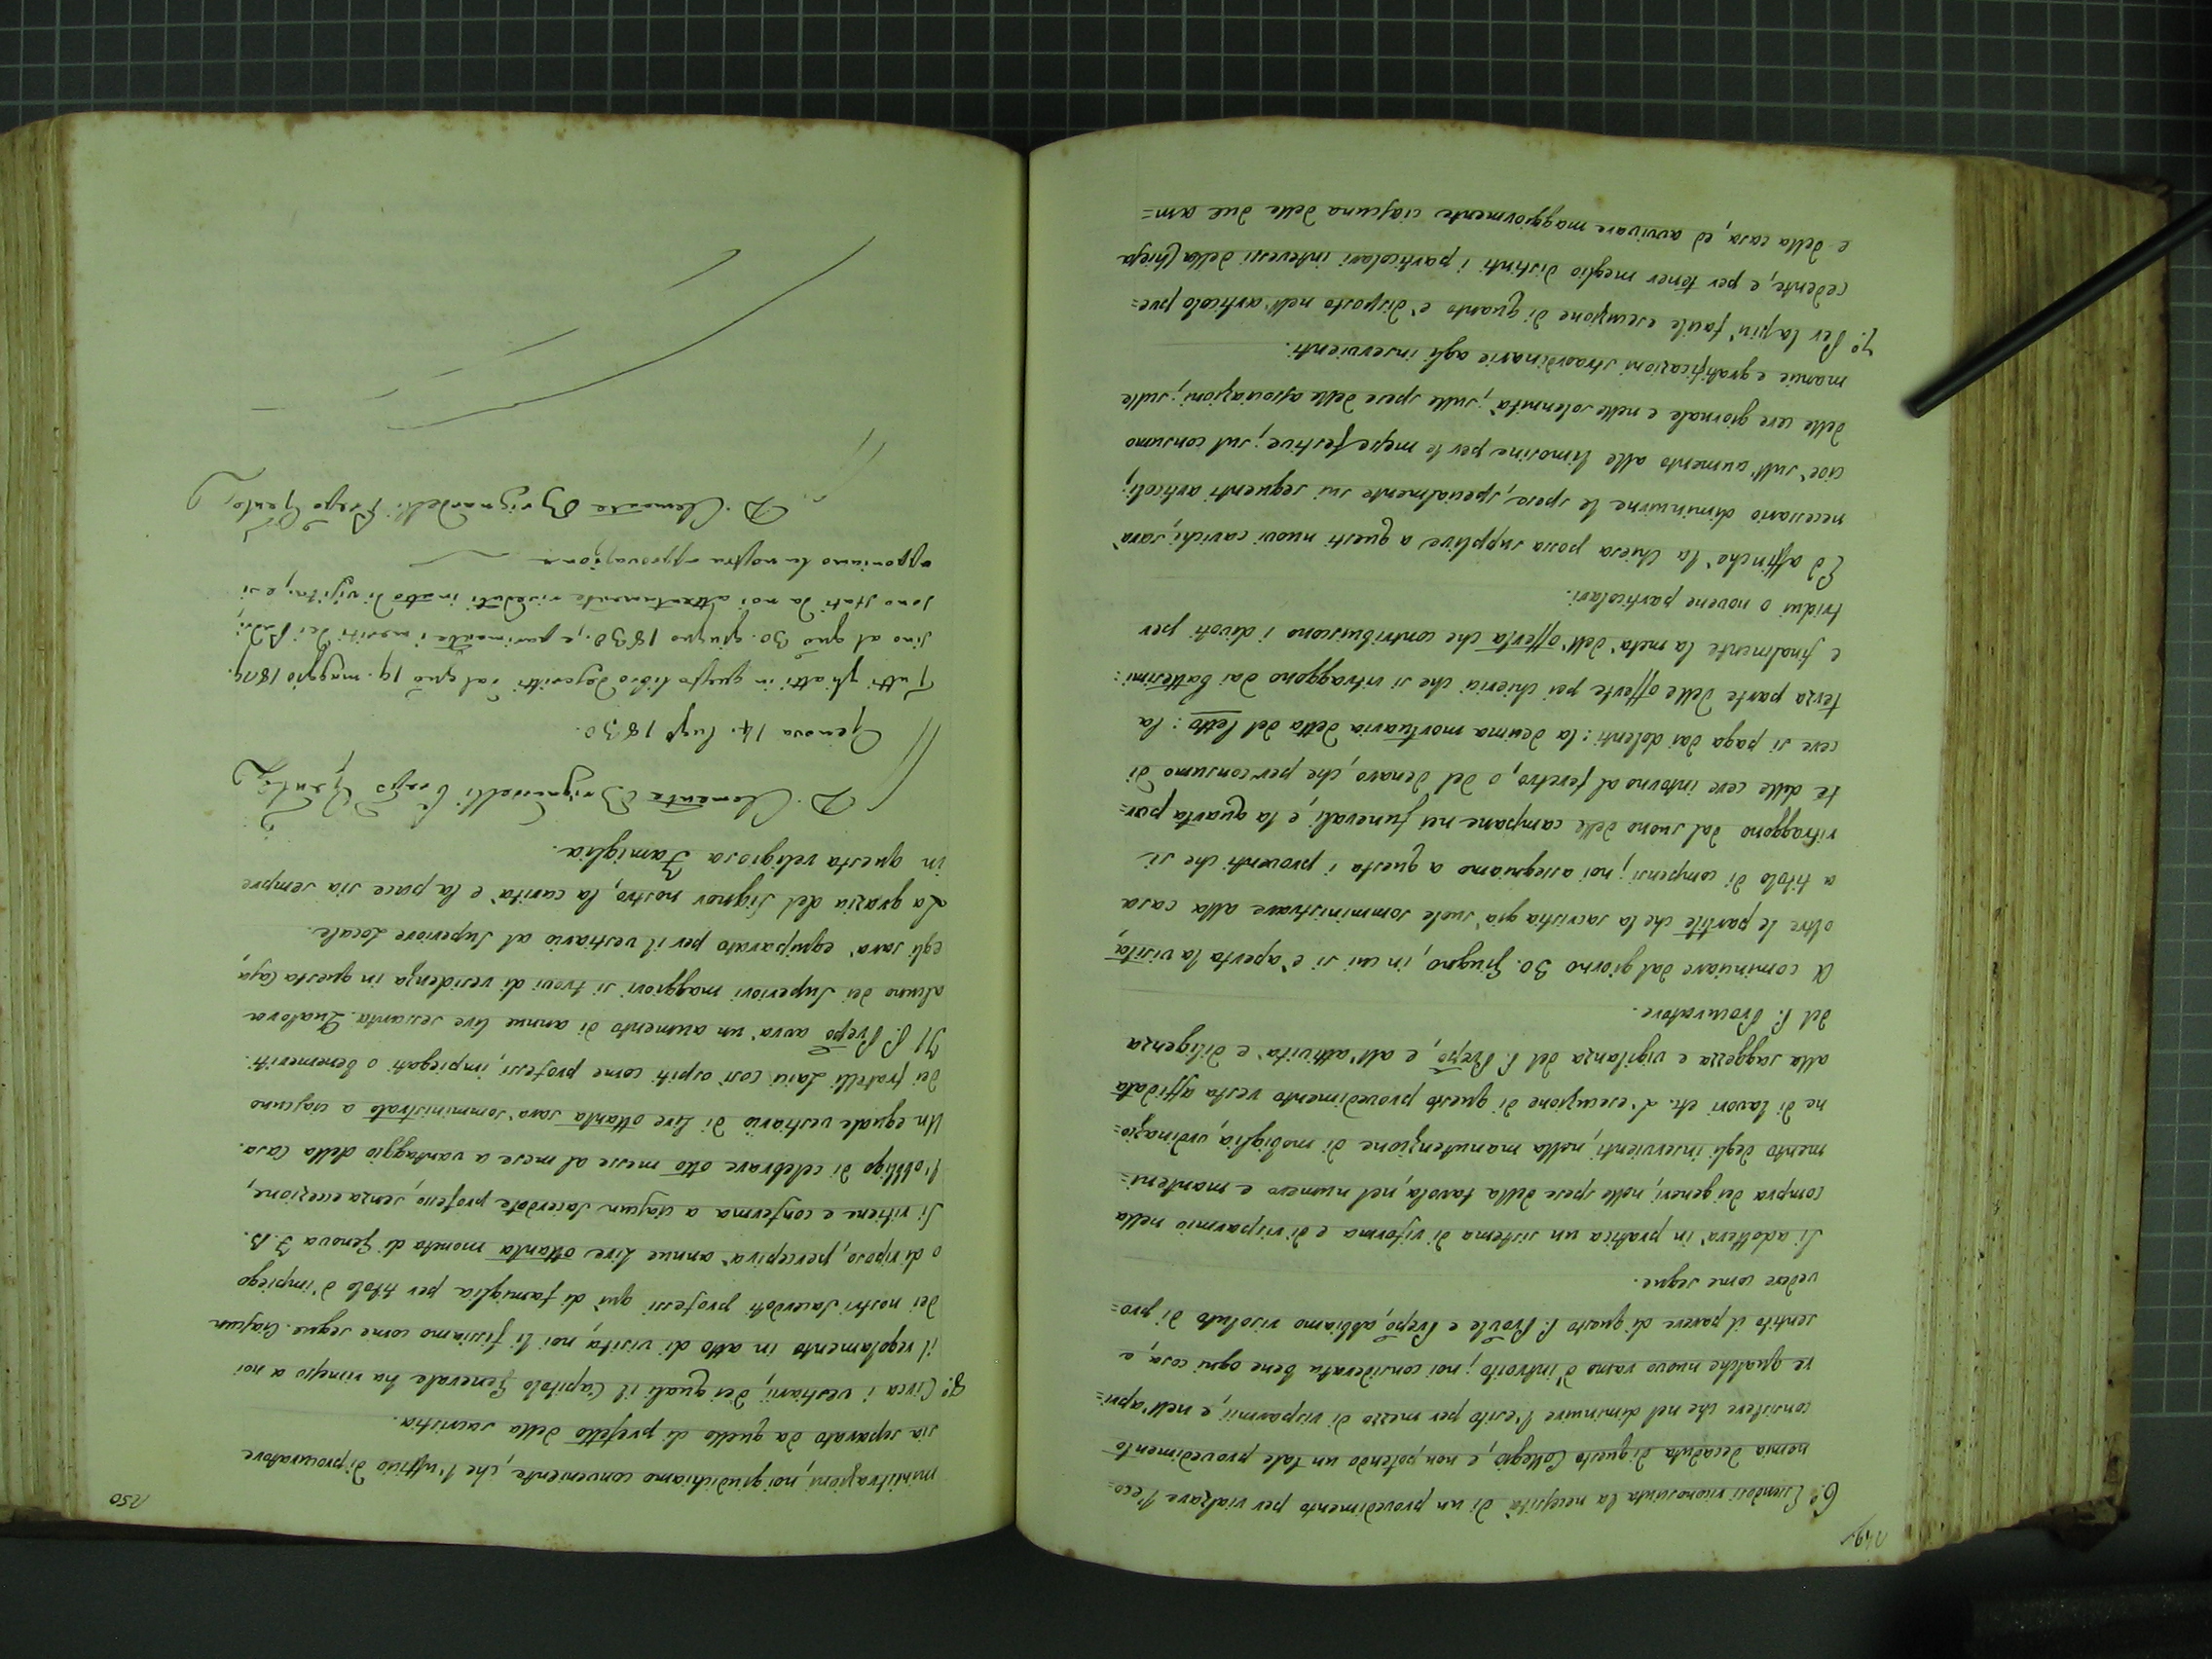 249
6.º Essendosi riconosciuta la necessità di un provedimento per rialzare l'eco=
nomia decaduta di questo Collegio, e non potendo un tale provedimento
consistere che nel diminuire l'esito per mezzo di risparmii, e nell'apri=
re qualche nuovo ramo d'introito; noi considerata bene ogni cosa, e
sentito il parere di questo P. Prõvle e Prepõ, abbiamo risoluto di pro=
vedere come segue.
Si adotterà in pratica un sistema di riforma e di risparmio nella
compra dei generi, nelle spese della tavola, nel numero e manteni=
mento degli inservienti, nella manutenzione di mobiglia, ordinazio=
ne di lavori etc. L'esecuzione di questo provedimento resta affidata
alla saggezza e vigilanza del P. Prepõ, e all'attività e diligenza
del P. Procuratore.
A cominciare dal giorno 30. Giugno, in cui si è aperta la visita,
oltre le partite che la sacristia già suole somministrare alla casa
a titolo di compensi, noi assegniamo a questa i proventi che si
ritraggono dal suono delle campane nei funerali, e la quarta par=
te delle cere intorno al feretro, o del denaro, che per consumo di
cere si paga dai dolenti: la decima mortuaria detta del letto: la
terza parte delle offerte pei chierici che si ritraggono dai battesimi:
e finalmente la metà dell'offerta che contribuiscono i divoti per
tridui o novene particolari.
Ed affinchè la Chiesa possa supplire a questi nuovi carichi, sarà
necessario diminuirne le spese, specialmente sui seguenti articoli;
cioè sull'aumento alle limosine per le messe festive; sul consumo
delle cere giornale e nelle solennità; sulle spese delle associazioni; sulle
mancie e gratificazioni straordinarie agli inservienti.
7.º Per la più facile esecuzione di quanto è disposto nell'articolo pre=
cedente, e per tener meglio distinti i particolari interessi della Chiesa
e della casa, ed avvivare maggiormente ciascuna delle due am=
250
ministrazioni, noi giudichiamo conveniente, che l'ufficio di procuratore
sia separato da quello di prefetto della sacristia.
8.º Circa i vestiarii, dei quali il Capitolo Generale ha rimesso a noi
il regolamento in atto di visita, noi li fissiamo come segue. Ciascun
dei nostri sacerdoti professi qui di famiglia per titolo d'impiego
o di riposo, percepirà annue Lire ottanta moneta di Genova F. B.
Si ritiene e conferma a ciascun sacerdote professo, senza eccezione,
l'obbligo di celebrare otto messe al mese a vantaggio della Casa.
Un eguale vestiario di Lire ottanta sarà somministrato a ciascuno
dei fratelli Laici così ospiti come professi, impiegati o benemeriti.
Il P. Prepõ avrà un aumento di annue lire sessanta. Qualora
alcuno dei Superiori maggiori si trovi di residenza in questa Casa,
egli sarà equiparato per il vestiario al Superiore Locale.
La grazia del Signor nostro, la carità e la pace sia sempre
in questa religiosa Famiglia.
D. Clemente Brignardelli Prepõ Genle
Genova 14. lugº 1830.
Tutti gli atti in questo libro descritti dal gnõ 19. maggio 1829.
sino al gnõ 30. giugno 1830., e parimente i meriti dei Padri,
sono stati da noi attentamente riveduti in atto di visita, e vi
apponiamo la nostra approvazione
D. Clemente Brignardelli Prepo Genle